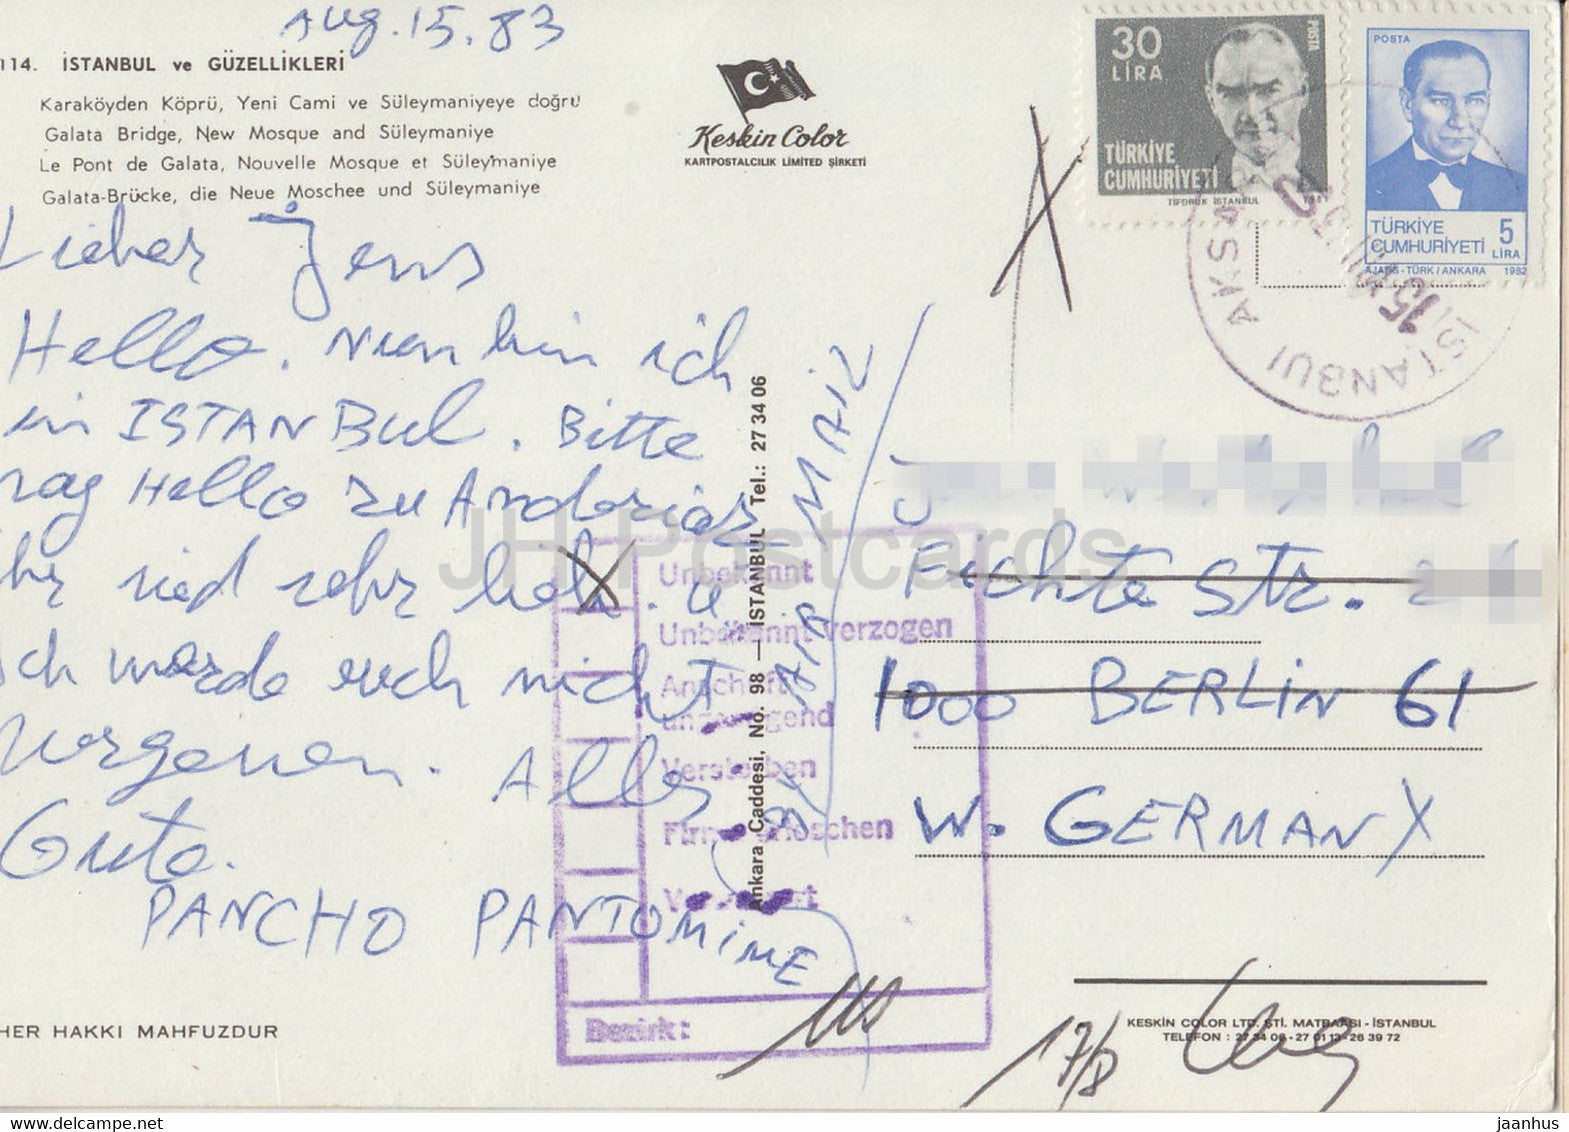 Aug. 15. 83
114. İSTANBUL ve GÜZELLİKLERİ
Karaköyden Köprü, Yeni Cami ve Süleymaniyeye doğru
Galata Bridge, New Mosque and Süleymaniye
Le Pont de Galata, Nouvelle Mosque et Süleymaniye
Galata-Brücke, die Neue Moschee und Süleymaniye
Keskin Color
KARTPOSTALCILIK LİMİTED ŞİRKETİ
30
LİRA
POSTA
TÜRKİYE
CUMHURİYETİ
TİFDRUK İSTANBUL 1981
POSTA
TÜRKİYE
CUMHURİYETİ
5
LİRA
AJANS - TÜRK / ANKARA 1982
İSTANBUL AKSARAY
15
Lieber Jens
Hello. Nun bin ich
in ISTANBUL. Bitte
sag Hello zu Andreas
Ihr sied sehr lieb.
Ich werde euch nicht
Vergessen. Alles
Gute.
PANCHO PANTOMIME
BY AIR MAIL
Ankara Caddesi, No. 98 — İSTANBUL Tel.: 27 34 06
Fichte Str.
1000 BERLIN 61
W. GERMANY
Unbekannt
Unbekannt verzogen
Anschrift
ungenügend
Verstorben
Firma erloschen
Verreist
Bezirk:
17/8
HER HAKKI MAHFUZDUR
KESKİN COLOR LTD. ŞTİ. MATBAASI - İSTANBUL
TELEFON : 27 34 06 - 27 01 13 - 26 39 72
JH Postcards
www.delcampe.net
jaanhus